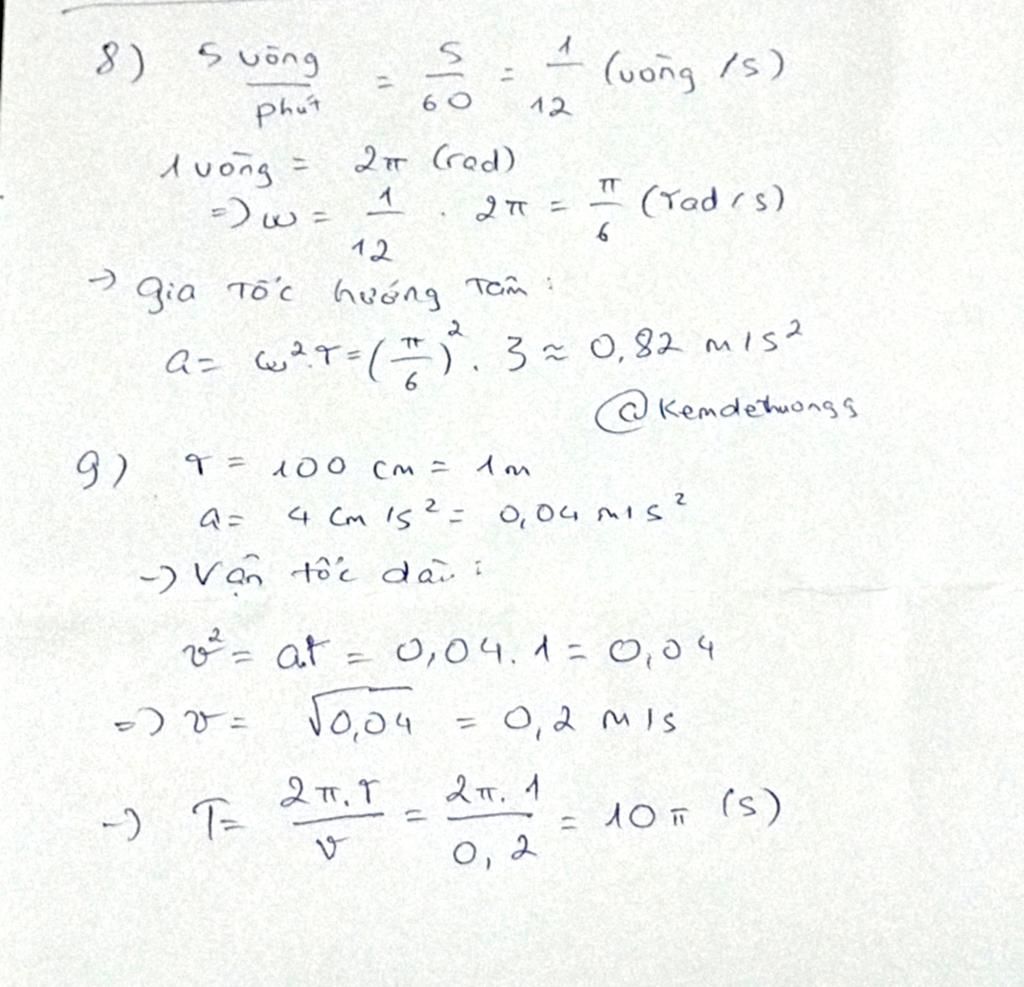 8) 5 vòng/phút = 5/60 = 1/12 (vòng/s)
1 vòng = 2π (rad)
=> ω = 1/12 . 2π = π/6 (rad/s)
→ gia tốc hướng tâm:
a = ω².r = (π/6)². 3 ≈ 0,82 m/s²
@Kemdethuongs
9) r = 100 cm = 1m
a = 4 cm/s² = 0,04 m/s²
→ Vận tốc dài:
v² = a.r = 0,04. 1 = 0,04
=> v = √0,04 = 0,2 m/s
→ T = 2π.r/v = 2π.1/0,2 = 10π (s)